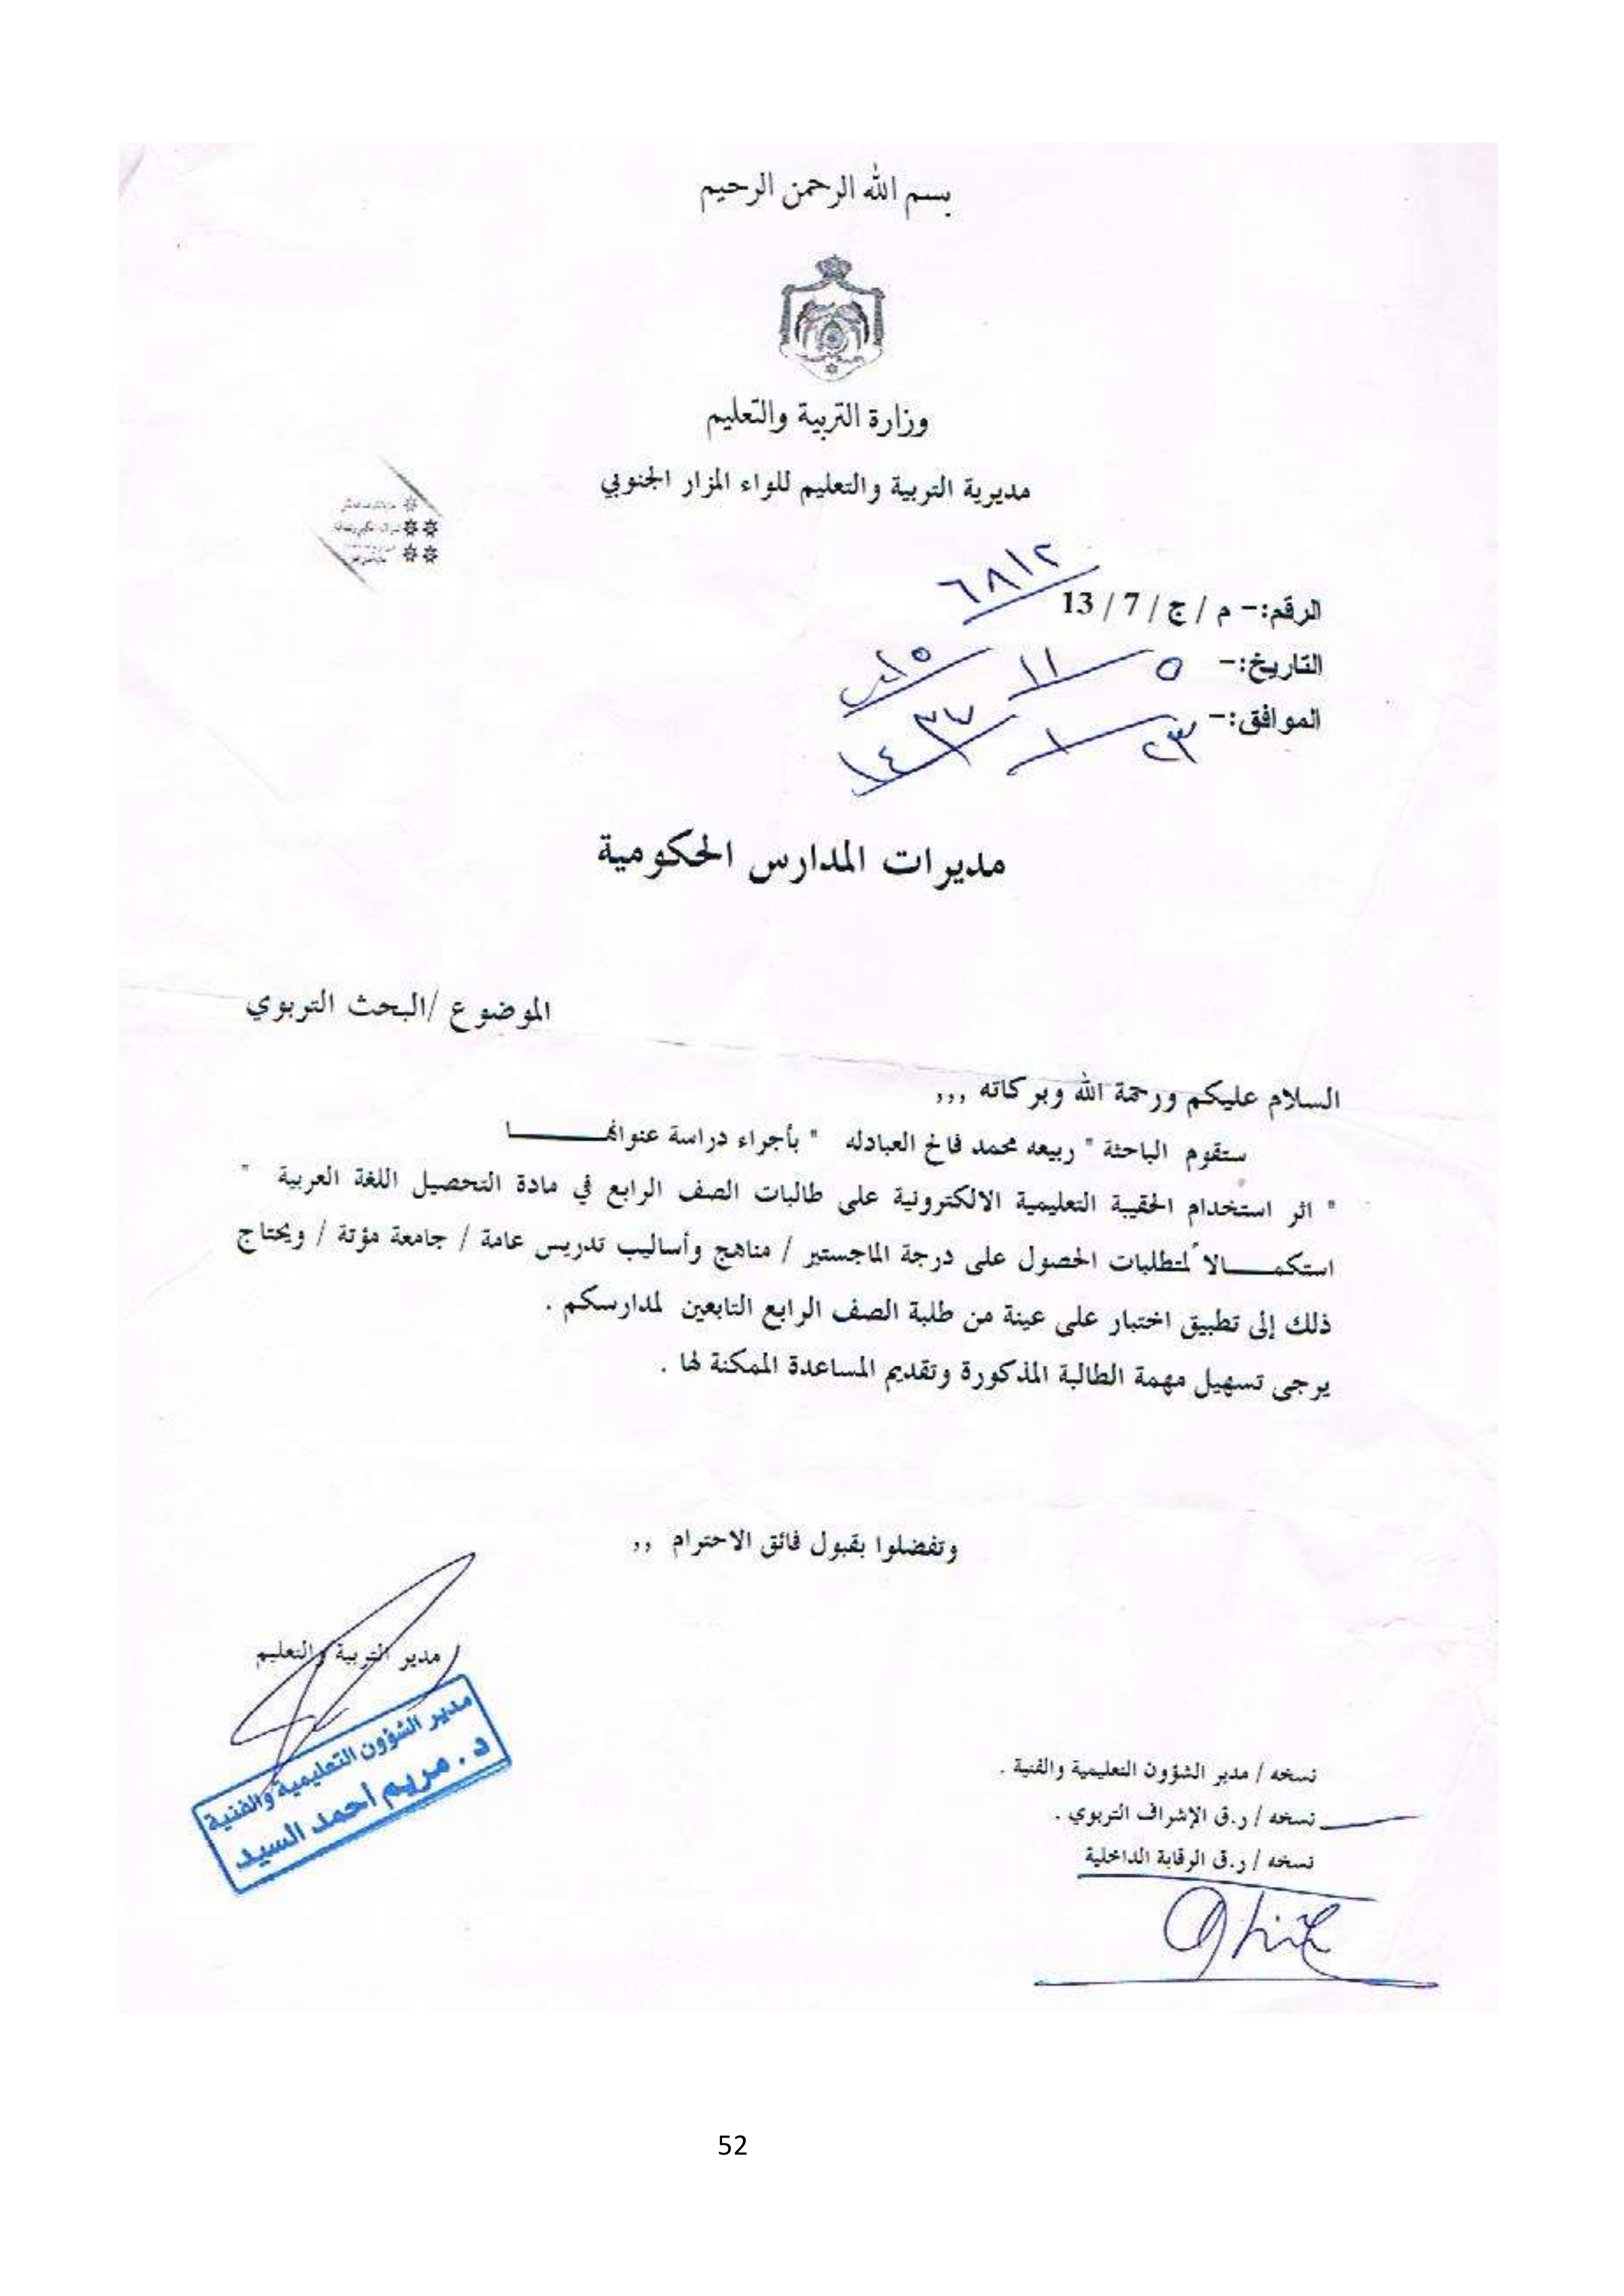 بسم الله الرحمن الرحيم
وزارة التربية والتعليم
مديرية التربية والتعليم للواء المزار الجنوبي
الرقم:- م / ج / 7 / 13 ٦٨١٢
التاريخ:- ٥ / ١١ / ٢٠١٥
الموافق:- ٢٣ / ١ / ١٤٣٧
مديرات المدارس الحكومية
الموضوع /البحث التربوي
السلام عليكم ورحمة الله وبركاته ,,,
ستقوم الباحثة " ربيعه محمد فالح العبادله " بأجراء دراسة عنوانهـــــــا
" اثر استخدام الحقيبة التعليمية الالكترونية على طالبات الصف الرابع في مادة التحصيل اللغة العربية "
استكمـــــالاً لمتطلبات الحصول على درجة الماجستير / مناهج وأساليب تدريس عامة / جامعة مؤتة / ويحتاج
ذلك إلى تطبيق اختبار على عينة من طلبة الصف الرابع التابعين لمدارسكم .
يرجى تسهيل مهمة الطالبة المذكورة وتقديم المساعدة الممكنة لها .
وتفضلوا بقبول فائق الاحترام ,,
مدير التربية والتعليم
مدير الشؤون التعليمية والفنية
د. مريم أحمد السيد
نسخه / مدير الشؤون التعليمية والفنية .
نسخه / ر.ق الإشراف التربوي .
نسخه / ر.ق الرقابة الداخلية
52